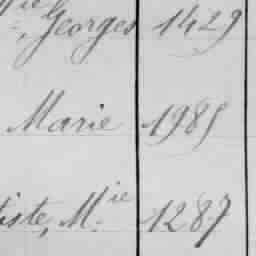 , Georges 1429
Marie 1985
tiste, M.ie 1287